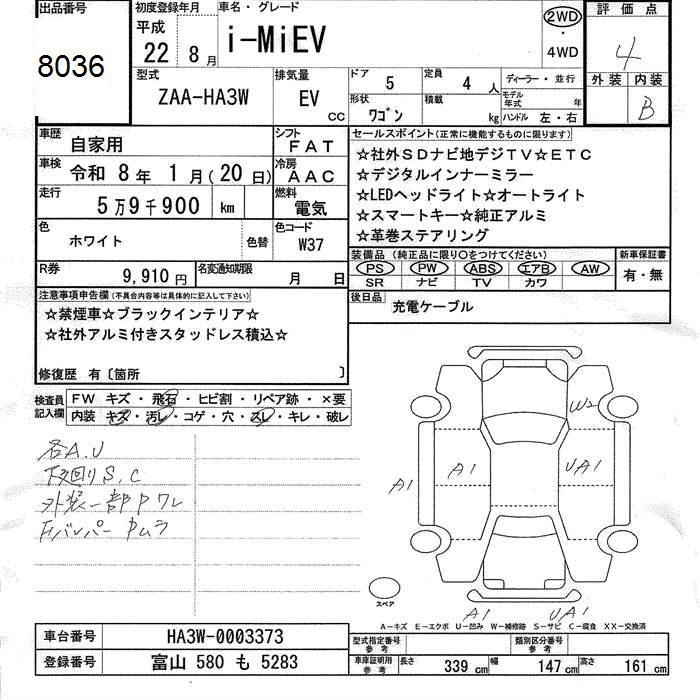 出品番号
8036
初度登録年月
平成
22 8月
車名・グレード
i-MiEV
2WD
・
4WD
評価点
4
外装 内装
B
型式
ZAA-HA3W
排気量
EV
cc
ドア 5
定員 4人
ディーラー・並行
形状 ワゴン
積載 kg
モデル年式 年
ハンドル 左・右
車歴
自家用
シフト
FAT
車検
令和 8年 1月(20日)
冷房
AAC
走行
5万9千900 km
燃料
電気
色
ホワイト
色替
色コード
W37
R券
9,910円
名変通知期限
月 日
セールスポイント(正常に機能するものに限ります)
☆社外SDナビ地デジTV☆ETC
☆デジタルインナーミラー
☆LEDヘッドライト☆オートライト
☆スマートキー☆純正アルミ
☆革巻ステアリング
装備品(純正品に限り○をつけてください)
PS PW ABS エアB AW
SR ナビ TV カワ
新車保証書
有・無
後日品
充電ケーブル
注意事項申告欄(不具合内容等は具体的に記入して下さい)
☆禁煙車☆ブラックインテリア☆
☆社外アルミ付きスタッドレス積込☆
修復歴 有〔箇所 〕
検査員記入欄
FW キズ・飛石・ヒビ割・リペア跡・×要
内装 キズ・汚レ・コゲ・穴・スレ・キレ・破レ
各A.U
下廻りS,C
外装一部Pワレ
Fバンパー Pムラ
W2
A1
A1
UA1
A1
A1
UA1
スペア
A-キズ E-エクボ U-凹み W-補修跡 S-サビ C-腐食 XX-交換済
車台番号
HA3W-0003373
登録番号
富山 580 も 5283
型式指定番号
参考
類別区分番号
参考
車庫証明用
参考
長さ 339cm 幅 147cm 高さ 161cm